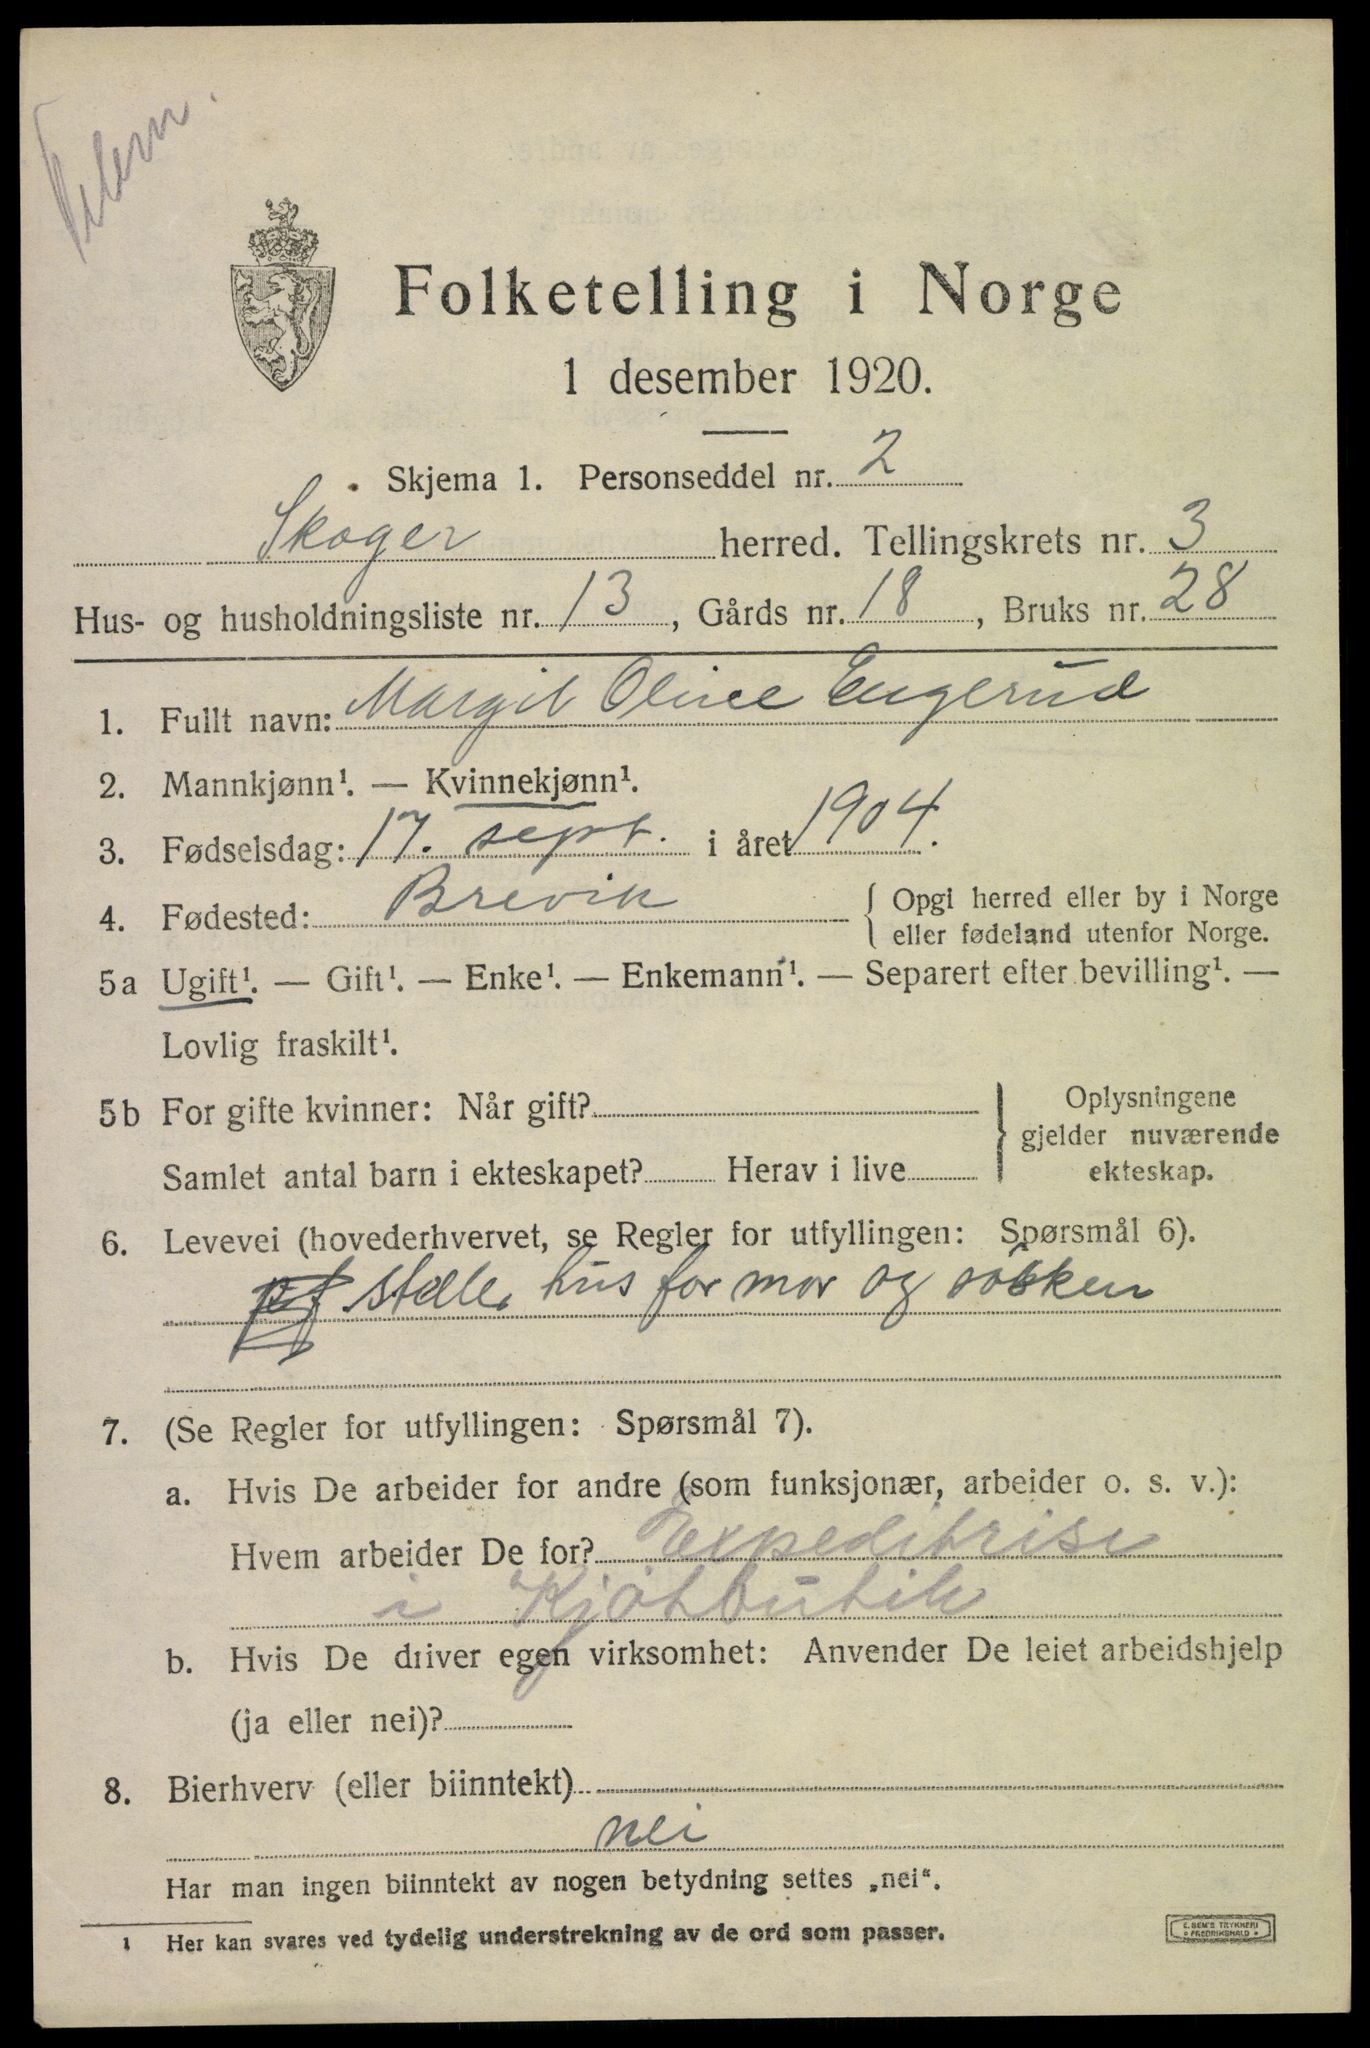 Telem.
Folketelling i Norge
1 desember 1920.
Skjema 1. Personseddel nr. 2
Skoger herred. Tellingskrets nr. 3
Hus- og husholdningsliste nr. 13, Gårds nr. 18, Bruks nr. 28
1. Fullt navn: Margit Oline Engerud
2. Mannkjønn¹. — Kvinnekjønn¹.
3. Fødselsdag: 17. sept. i året 1904.
4. Fødested: Brevik { Opgi herred eller by i Norge
eller fødeland utenfor Norge.
5a Ugift¹. — Gift¹. — Enke¹. — Enkemann¹. — Separert efter bevilling¹. —
Lovlig fraskilt¹.
5b For gifte kvinner: Når gift? } Oplysningene
gjelder nuværende
Samlet antal barn i ekteskapet? Herav i live ekteskap.
6. Levevei (hovederhvervet, se Regler for utfyllingen: Spørsmål 6).
steller hus for mor og søsken
7. (Se Regler for utfyllingen: Spørsmål 7).
a. Hvis De arbeider for andre (som funksjonær, arbeider o. s. v.):
Hvem arbeider De for? Expeditrise
i Kjøtbutik
b. Hvis De driver egen virksomhet: Anvender De leiet arbeidshjelp
(ja eller nei)?
8. Bierhverv (eller biinntekt)
nei
Har man ingen biinntekt av nogen betydning settes „nei“.
¹ Her kan svares ved tydelig understrekning av de ord som passer.
E. SEM'S TRYKKERI
FREDRIKSHALD